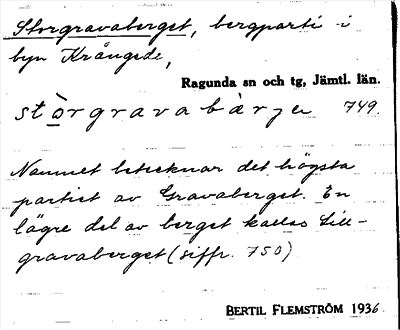 Storgravaberget, bergparti i
byn Krångede,
Ragunda sn och tg, Jämtl. län.
stò̲rgravabàrjə 749.
Namnet betecknar det högsta
partiet av Gravaberget. En
lägre del av berget kallas Lill-
gravaberget (siffr. 750)
BERTIL FLEMSTRÖM 1936.